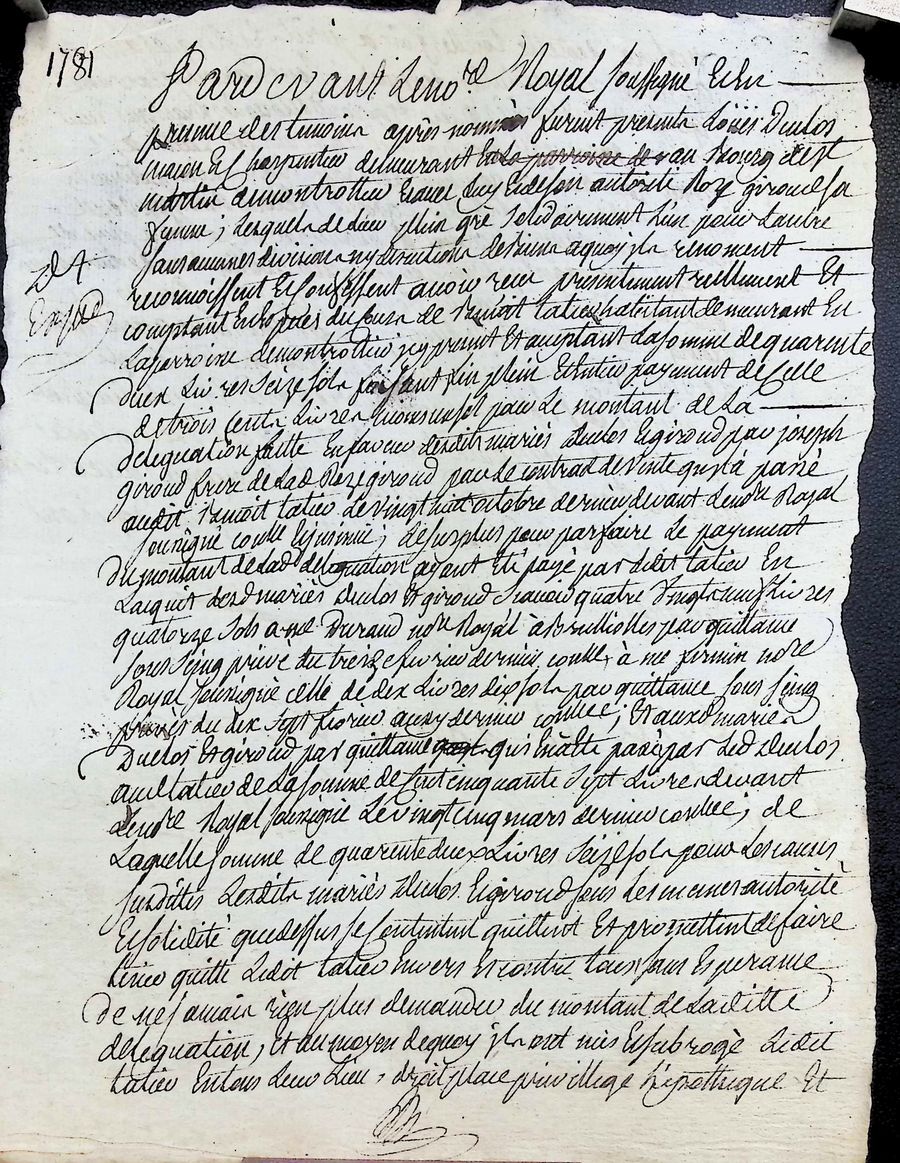 1781
Pardevant Le no.re Royal soussigné Et En
presence des temoins après nommés furent presents Loüis Duclos
maçon Et Charpentier demeurant En La parroisse de au Bourg de st
martin demontrottier Et avec Luy Et de son autorité Roze giroud sa
femme; Lesquels de Leur plein gré solidairement L'un pour L'autre
sans aucunes division ny discution de biens a quoy ils renoncent
reconnoissent Et Confessent avoir reçu presentement réellement Et
comptant En Especes du Cours de Benoit tatieu habitant demeurant En
La parroisse demontrottier icy present Et aceptant La somme de quarente
deux Livres seize sols faisant fin plein Et Entier payement de Celle
de trois Cents Livres pour Le montant de La
delegation faitte En faveur desdits mariés Duclos Et giroud par joseph
giroud frere de Lad. Roze giroud par Le contract de vente qu'il a passé
audit Benoit tatieu Le vingt huit octobre dernier devant Le no.re Royal
soussigné conllé Et ; Le surplus pour parfaire Le payement
du montant de Lad. delegation ayant Eté payé par Ledit tatieu En
L'acquit desd. mariés Duclos Et giroud sçavoir quatre vingt neuf Livres
quatorze sols a me. Durand no.re Royal à Brullioles par quittance
sous seing privé du treize fevrier dernier conllé, à me firmin no.re
Royal soussigné celle de dix Livres dix sols par quittance sous seing
privé du dix sept fevrier aussy dernier conllée; Et auxd. mariés
Duclos Et giroud par quittance qui En a Eté passée par Led. Duclos
audit tatieu de La somme de Cent cinquante sept Livres devant
Le no.re Royal soussigné Le vingt cinq mars dernier conllée; de
Laquelle somme de quarente deux Livres seize sols pour Les causes
susdittes Lesdits mariés Duclos Et giroud sous Les mêmes autorité
Et solidité que dessus se Contentent quittent Et promettent de faire
tenir quitte Ledit tatieu Envers Et contre tous sans Esperance
de ne jamais rien plus demander du montant de Laditte
delegation, Et au moyen de quoy ils ont mis Et subrogé Ledit
tatieu En tous Leur Lieu, droit place privillege hipotheque Et